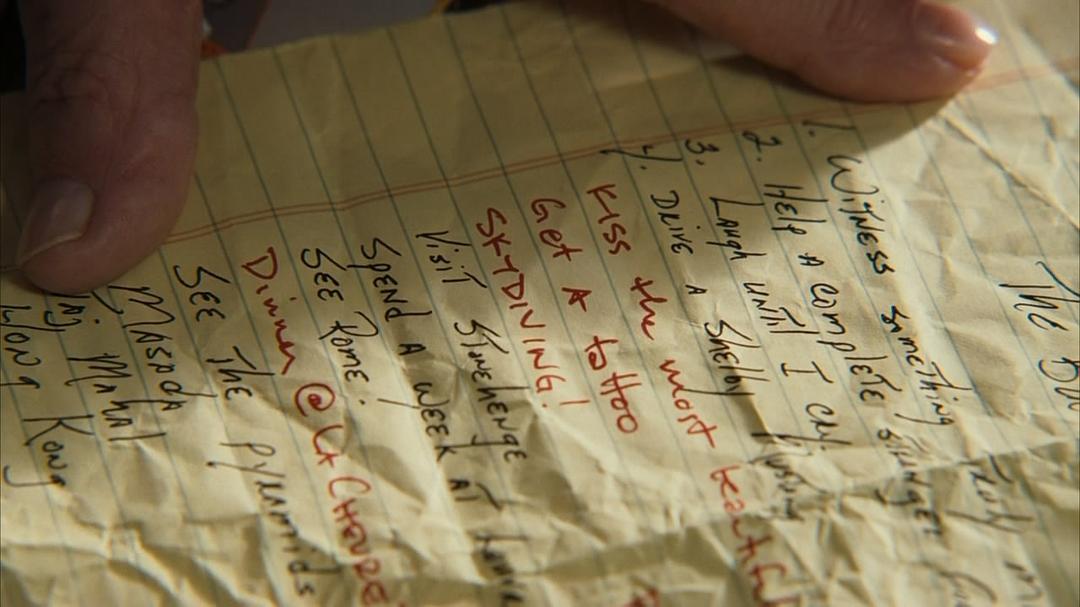 The
1. Witness something Truly
2. Help a complete stranger
3. Laugh until I cry
4. Drive a Shelby
Kiss the most beautiful
Get A tattoo
SKYDIVING!
Visit Stonehenge
Spend A week AT
See Rome!
Dinner @ La Chevre
See The pyramids
Masada
Taj Mahal
Hong Kong